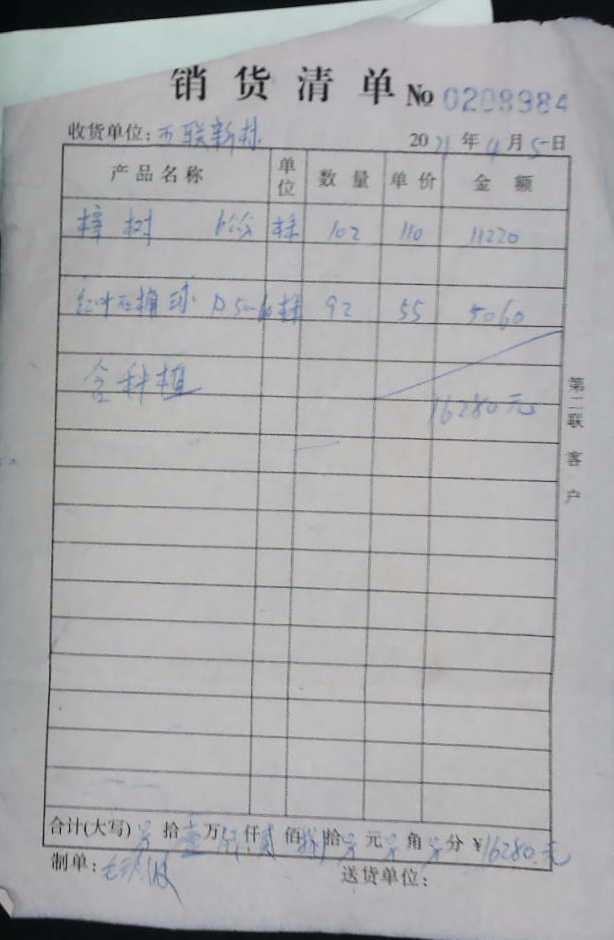 销货清单 № 0208984
收货单位: 联新村 2021年4月5日
产品名称 单位 数量 单价 金额
梓树 株 102 110 11220
红叶石楠球 株 92 55 5060
含种植
16280元
第二联 客户
合计(大写) 拾壹万仟贰佰捌拾零元零角零分 ¥16280.元
制单:
送货单位: